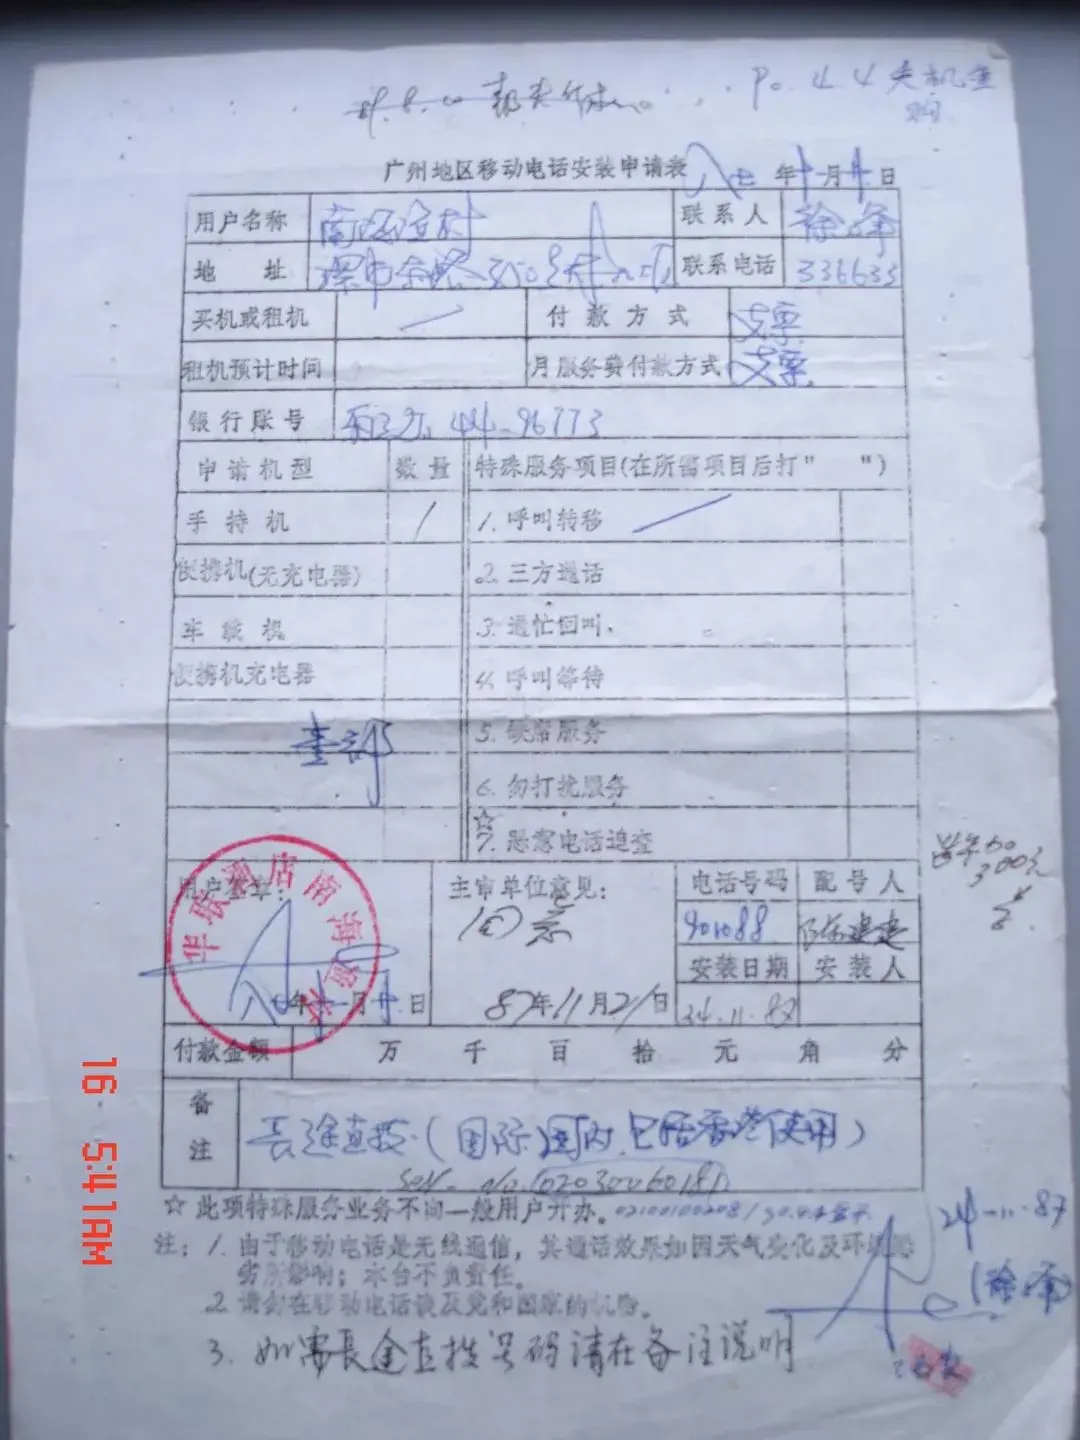 P0.44失机查询
广州地区移动电话安装申请表 八七年十一月廿日
用户名称 南海渔村 联系人 徐峰
地址 联系电话 336635
买机或租机 付款方式 支票
租机预计时间 月服务费付款方式 支票
银行账号 44-96773
申请机型 数量 特殊服务项目(在所需项目后打" ")
手持机 1 1. 呼叫转移
便携机(无充电器) 2. 三方通话
车载机 3. 遇忙回叫
便携机充电器 4. 呼叫等待
壹部 5. 缺席服务
6. 勿打扰服务
☆
7. 恶意电话追查
用户签章: 主审单位意见: 电话号码 配号人
华联酒店南海渔村
同意 901088 陈建建
安装日期 安装人
八七年十一月廿日 87年11月21日 24.11.87
付款金额 万 千 百 拾 元 角 分
备注 長途直拨(国际国内包括香港使用)
No.02030060181
☆此项特殊服务业务不向一般用户开办。
24-11-87
(徐峰)
注: 1. 由于移动电话是无线通信,其通话效果如因天气变化及环境恶
劣所影响;本台不负责任。
2. 请勿在移动电话谈及党和国家的机密。
3. 如需長途直拨号码请在备注说明
16 5:41AM